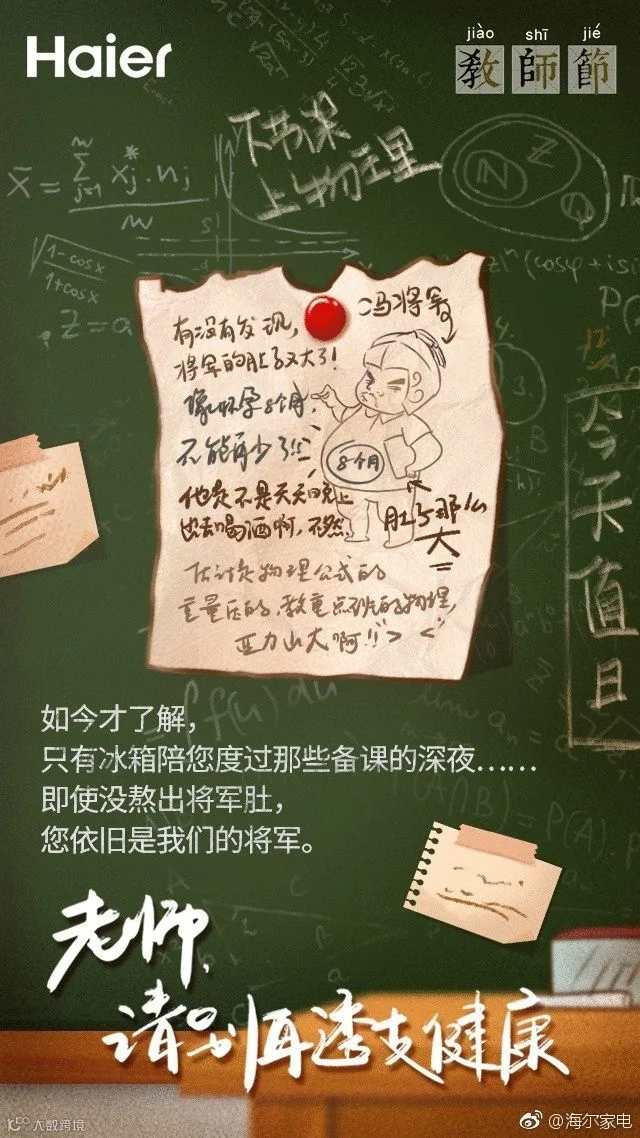 Haier
jiào shī jié
教師節
下节课
上物理
冯将军
有没有发现,
将军的肚子又大了!
像怀孕8个月,
不能再少了!!
8个月
他是不是天天晚上
出去喝酒啊,不然
肚子那么
大
估计是物理公式的
重量压的,教重点班的物理,
亚力山大啊!!> <
今天值日
如今才了解,
只有冰箱陪您度过那些备课的深夜……
即使没熬出将军肚,
您依旧是我们的将军。
老师,
请别再透支健康
大数跨境
@海尔家电